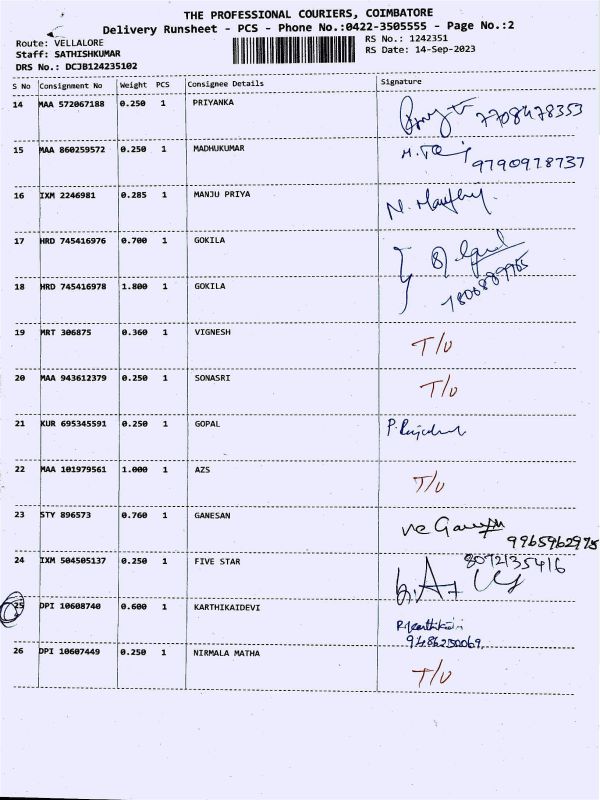 THE PROFESSIONAL COURIERS, COIMBATORE
Delivery Runsheet - PCS - Phone No.:0422-3505555 - Page No.:2
Route: VELLALORE RS No.: 1242351
Staff: SATHISHKUMAR RS Date: 14-Sep-2023
DRS No.: DCJB124235102
S No Consignment No Weight PCS Consignee Details Signature
14 MAA 572067188 0.250 1 PRIYANKA 7708478353
15 MAA 860259572 0.250 1 MADHUKUMAR 9790978737
16 IXM 2246981 0.285 1 MANJU PRIYA
17 HRD 745416976 0.700 1 GOKILA
18 HRD 745416978 1.800 1 GOKILA
19 MRT 306875 0.360 1 VIGNESH T/U
20 MAA 943612379 0.250 1 SONASRI T/U
21 KUR 695345591 0.250 1 GOPAL
22 MAA 101979561 1.000 1 AZS T/U
23 STY 896573 0.760 1 GANESAN 9965962975
24 IXM 504505137 0.250 1 FIVE STAR 8072135416
25 DPI 10608740 0.600 1 KARTHIKAIDEVI
9486250069
26 DPI 10607449 0.250 1 NIRMALA MATHA T/U